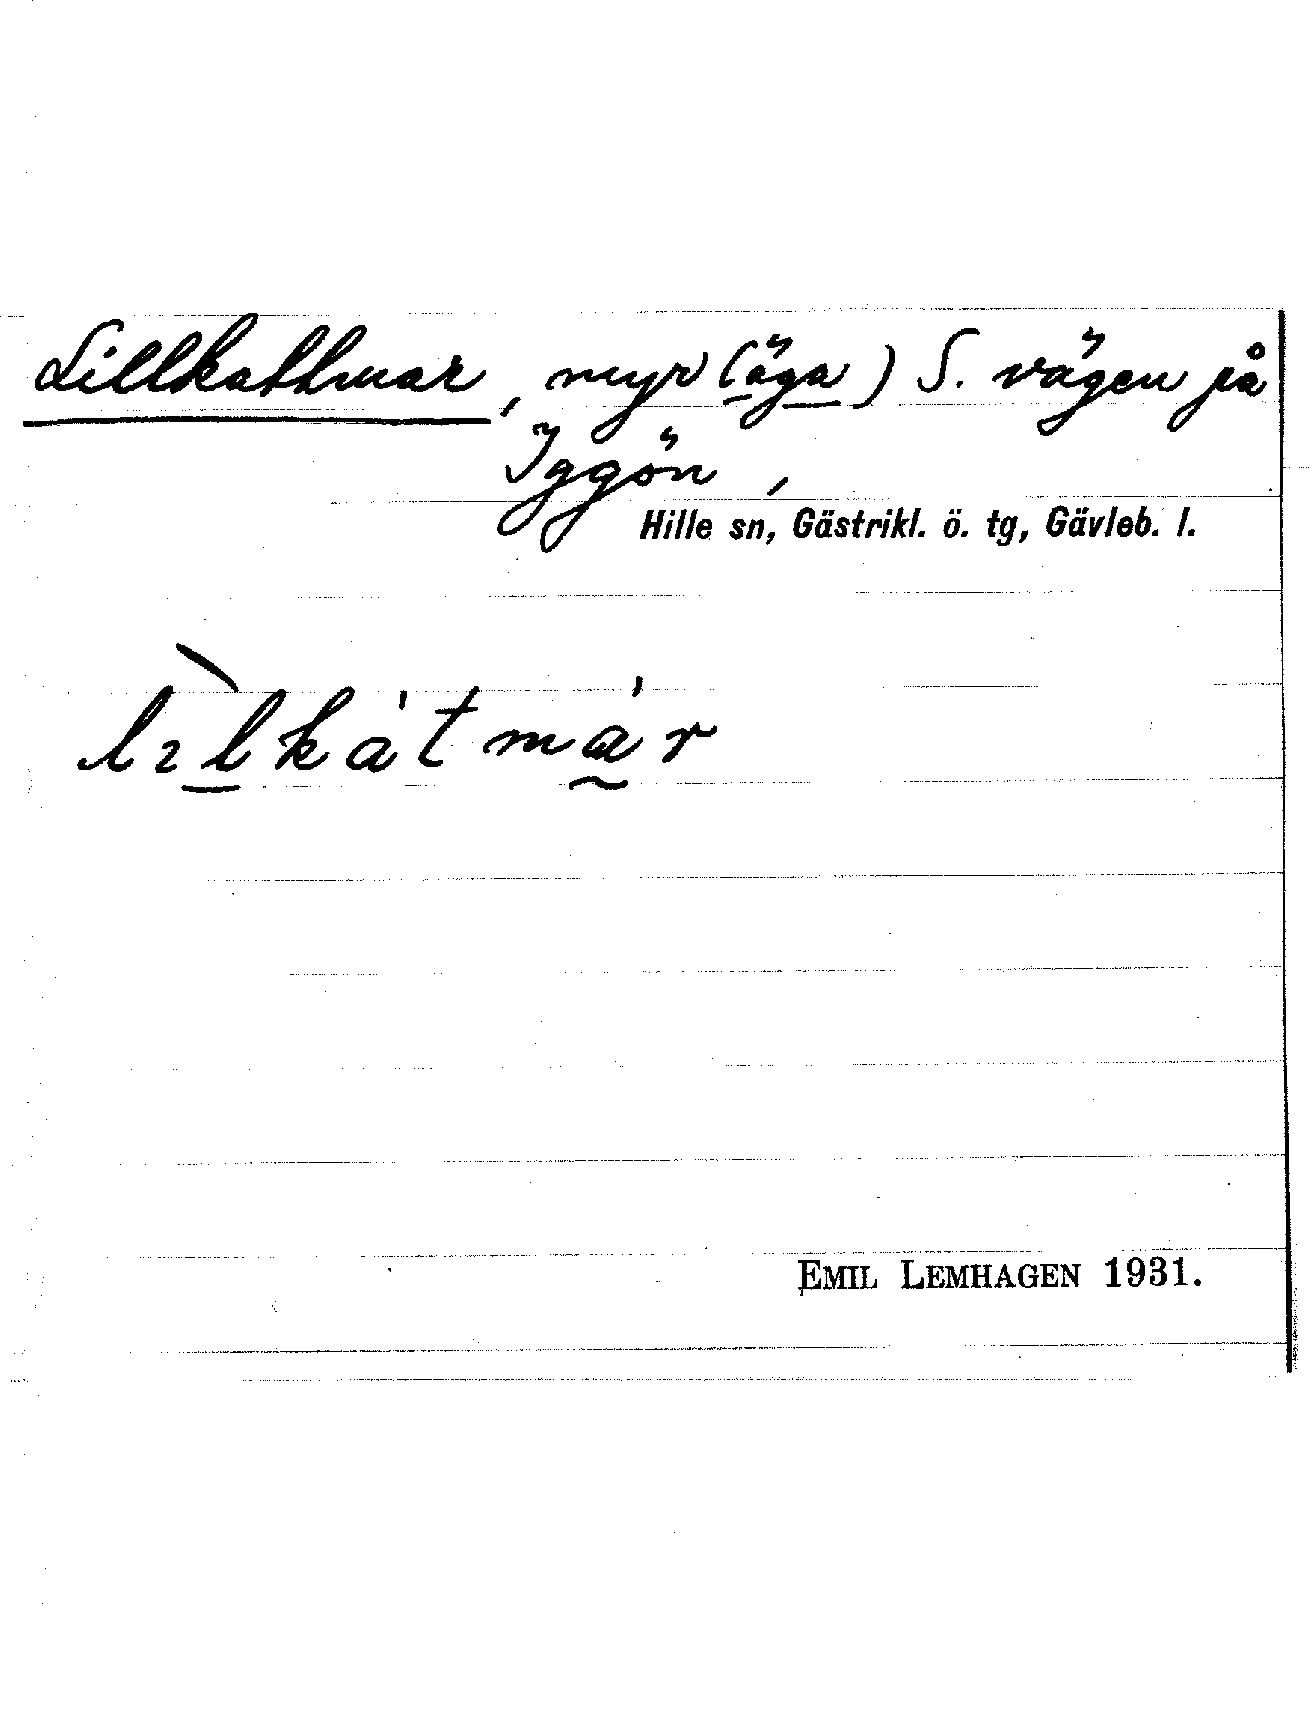 Lillkattmar, myr (äga) S. vägen på
Iggön,
Hille sn, Gästrikl. ö. tg, Gävleb. l.
lɩ̀l̲kátmá̰r
EMIL LEMHAGEN 1931.